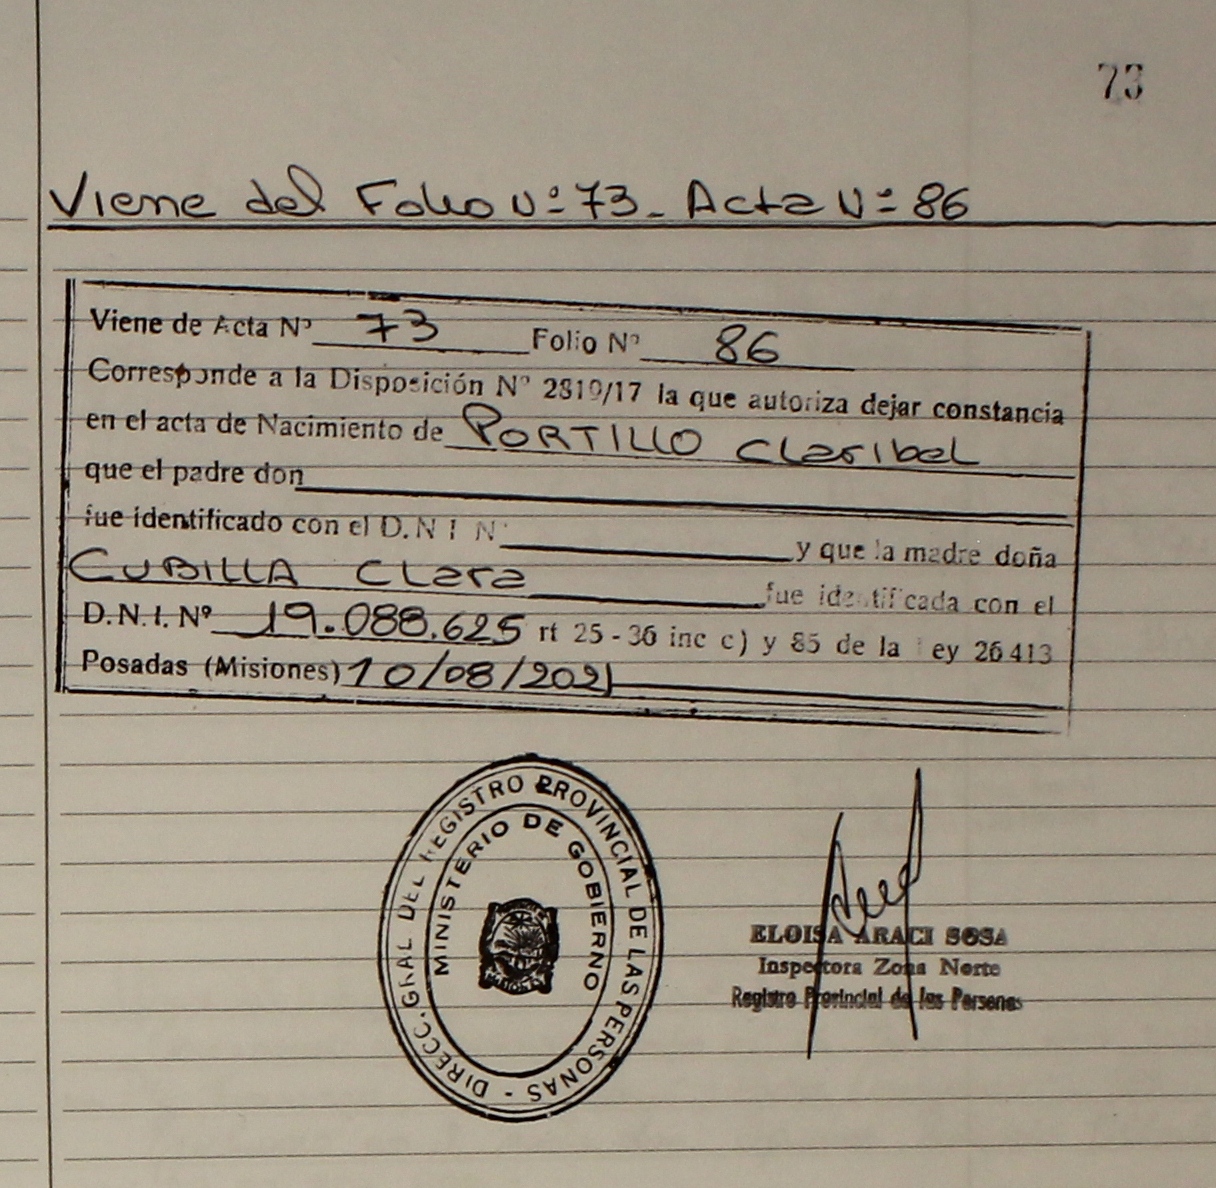 73
Viene del Folio Nº 73 - Acta Nº 86
Viene de Acta Nº 73 Folio Nº 86
Corresponde a la Disposición Nº 2810/17 la que autoriza dejar constancia
en el acta de Nacimiento de PORTILLO Claribel
que el padre don
fue identificado con el D.N I N° y que la madre doña
CUBILLA Clara fue identificada con el
D.N.I. Nº 19.088.625 rt 25 - 36 inc c) y 85 de la ey 26 413
Posadas (Misiones) 10/08/2021
DIRECC. GRAL DEL REGISTRO PROVINCIAL DE LAS PERSONAS -
MINISTERIO DE GOBIERNO
ELOISA ARACI SOSA
Inspectora Zona Norte
Registro Provincial de las Personas